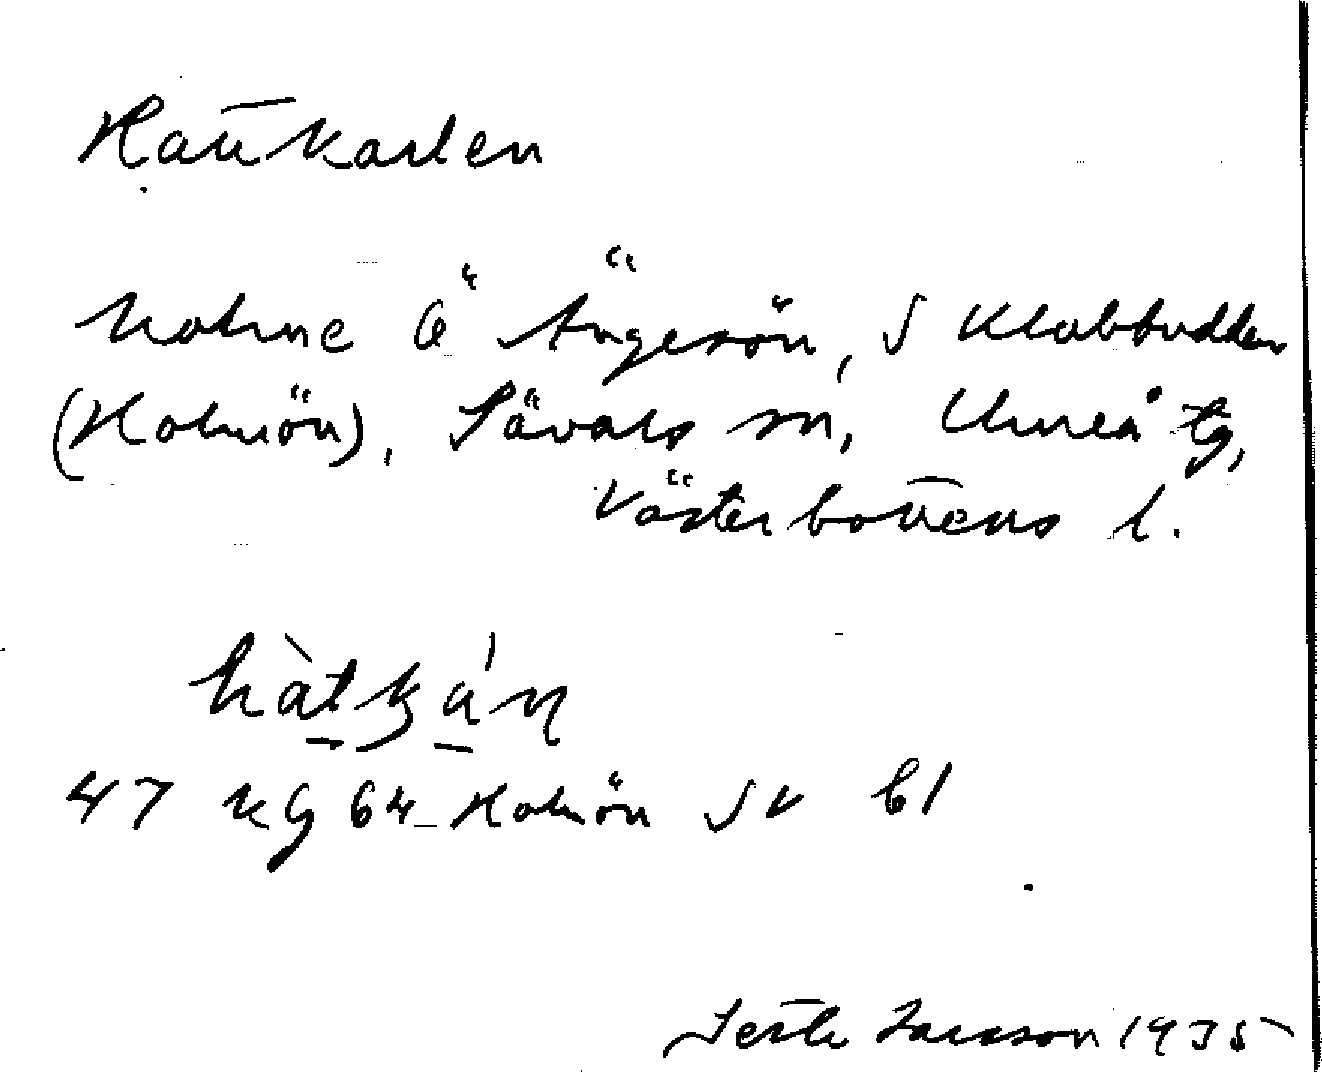 Hattkarlen
holme Ö Ängesön, S Klabbudden
(Holmön), Sävars sn, Umeå tg,
Västerbottens l.
hàtkán
47 kg 64 Holmön SV bl
Larsson 1935